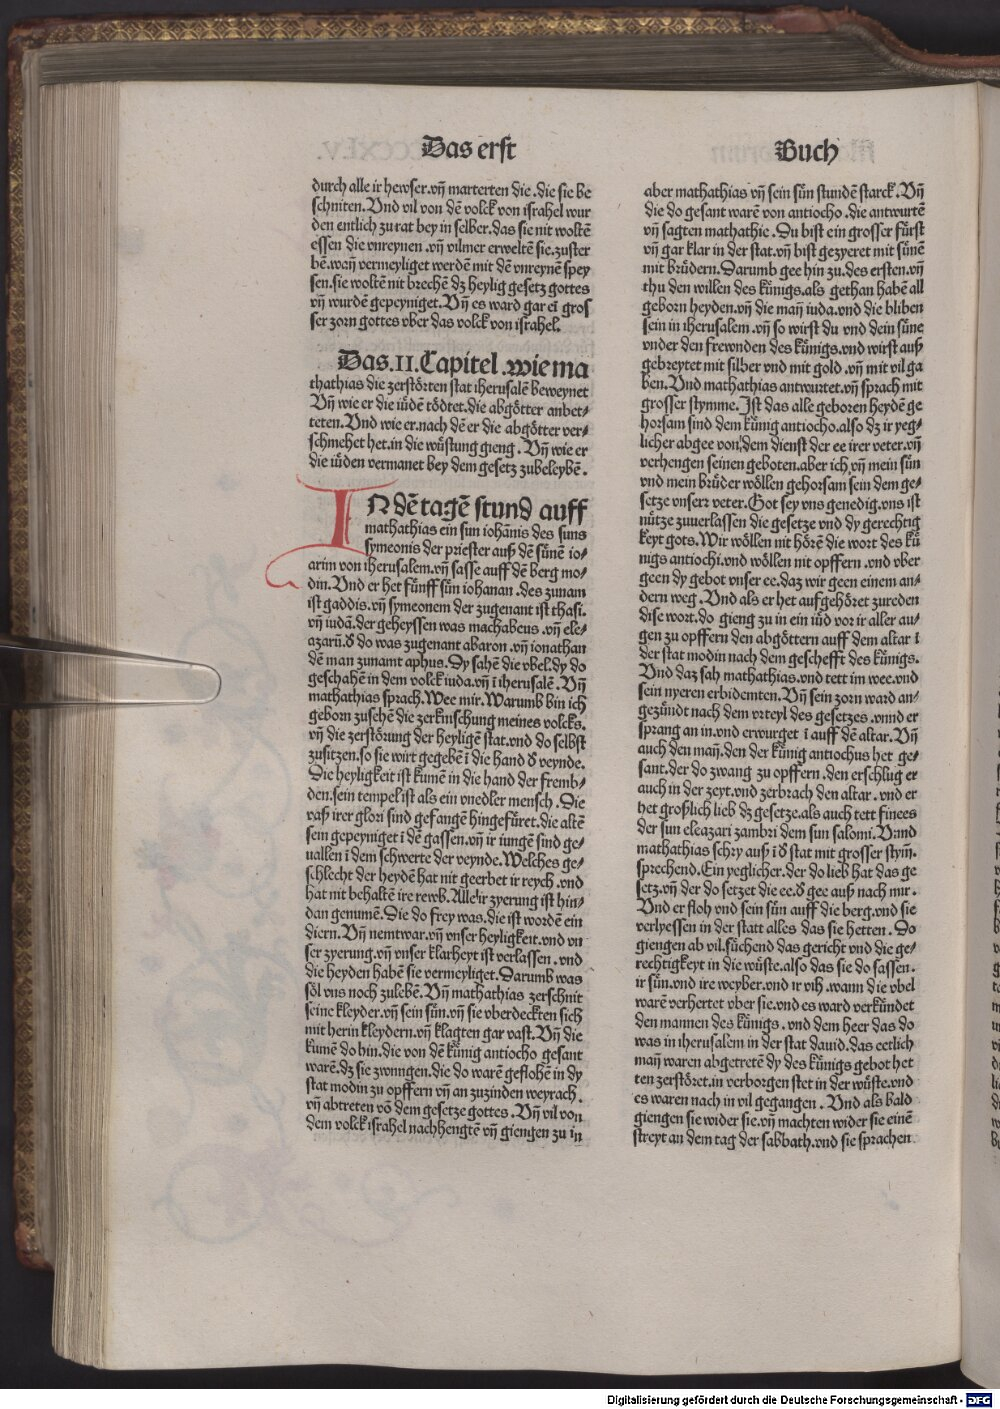 Das erst
durch alle ir hewser.vñ marterten die.die sie be
schniten.Vnd vil von dē volck von israhel wur
den entlich zu rat bey in selber.das sie nit woltē
essen die vnreynen.vñ vilmer erweltē sie.zuster
bē.wañ vermeyliget werdē mit dē vnreynē spey
sen.sie woltē nit brechē dz heylig gesetz gottes
vñ wurdē gepeyniget.Vñ es ward gar eī gros
ser zorn gottes vber das volck von israhel.
Das.II.Capitel.wie ma
thathias die zerstörten stat iherusalē beweynet
Vñ wie er die iüdē tödtet.die abgötter anbet⸗
teten.Vnd wie er.nach dē er die abgötter ver⸗
schmehet het.in die wüstung gieng.Vñ wie er
die iüden vermanet bey dem gesetz zubeleybē.
IN dē tagē stund auff
mathathias ein sun iohānis des suns
symeonis der priester auß dē sünē io⸗
arim von iherusalem.vñ sasse auff dē berg mo⸗
din.Vnd er het fünff sün iohanan.des zunam
ist gaddis.vñ symeonem der zugenant ist thasi.
vñ iudā.der geheyssen was machabeus.vñ ele⸗
azarū.d do was zugenant abaron.vñ ionathan
dē man zunamt aphus.Dy sahē die vbel.dy do
geschahē in dem volck iuda.vñ ī iherusalē.Vñ
mathathias sprach.Wee mir.Warumb bin ich
geborn zusehē die zerknischung meines volcks.
vñ die zerstörung der heyligē stat.vnd do selbst
zusitzen.so sie wirt gegebē ī die hand d veynde.
Die heyligkeit ist kumē in die hand der fremb⸗
den.sein tempel ist als ein vnedler mensch.Die
vaß irer glori sind gefangē hingefüret.die altē
sein gepeyniget ī dē gassen.vñ ir iungē sind ge⸗
uallen ī dem schwerte der veynde.Welches ge⸗
schlecht der heydē hat nit geerbet ir reych.vnd
hat nit behaltē ire rewb.Alle ir zyerung ist hin⸗
dan genumē.Die do frey was.die ist wordē ein
diern.Vñ nemtwar.vñ vnser heyligkeit.vnd vn
ser zyerung.vñ vnser klarheyt ist verlassen.vnd
die heyden habē sie vermeyliget.Darumb was
söl vns noch zulebē.Vñ mathathias zerschnit
seine kleyder.vñ sein sün.vñ sie vberdeckten sich
mit herin kleydern.vñ klagten gar vast.Vñ die
kumē do hin.die von dē künig antiocho gesant
warē.dz sie zwungen.die do warē geflohē in dy
stat modin zu opffern vñ an zuzinden weyrach.
vñ abtreten vō dem gesetze gottes.Vñ vil von
dem volck israhel nachhengtē vñ giengen zu in
Buch
aber mathathias vñ sein sün stundē starck.Vñ
die do gesant warē von antiocho.die antwurtē
vñ sagten mathathie.Du bist ein grosser fürst
vñ gar klar in der stat.vñ bist gezyeret mit sünē
mit brüdern.Darumb gee hin zu.des ersten.vñ
thu den willen des künigs.als gethan habē all
geborn heyden.vñ die mañ iuda.vnd die bliben
sein in iherusalem.vñ so wirst du vnd dein süne
vnder den frewnden des künigs.vnd wirst auß
gebreytet mit silber vnd mit gold.vñ mit vil ga
ben.Vnd mathathias antwurtet.vñ sprach mit
grosser stymme.Ist das alle geboren heydē ge
horsam sind dem künig antiocho.also dz ir yeg⸗
licher abgee von dem dienst der ee irer veter.vñ
verhengen seinen geboten.aber ich vñ mein sün
vnd mein brüder wöllen gehorsam sein dem ge⸗
setze vnserr veter.Got sey vns genedig.vns ist
nütze zuuerlassen die gesetze vnd dy gerechtig
keyt gots.Wir wöllen nit hörē die wort des kü
nigs antiochi.vnd wöllen nit opffern.vnd vber
geen dy gebot vnser ee.daz wir geen einem an⸗
dern weg.Vnd als er het aufgehöret zureden
dise wort.do gieng zu in ein iüd vor ir aller au⸗
gen zu opffern den abgöttern auff dem altar ī
der stat modin nach dem geschefft des künigs.
Vnd daz sah mathathias.vnd tett im wee.vnd
sein nyeren erbidemten.Vñ sein zorn ward an⸗
gezündt nach dem vrteyl des gesetzes.vnnd er
sprang an in.vnd erwurget ī auff dē altar.Vñ
auch den mañ.den der künig antiochus het ge⸗
sant.der do zwang zu opffern.den erschlug er
auch in der zeyt.vnd zerbrach den altar.vnd er
het großlich lieb dz gesetze.als auch tett finees
der sun eleazari zambri dem sun salomi.Vnnd
mathathias schry auß ī d stat mit grosser stym̄.
sprechend.Ein yeglicher.der do lieb hat das ge
setz.vñ der do setzet die ee.d gee auß nach mir.
Vnd er floh vnd sein sün auff die berg.vnd sie
verlyessen in der statt alles das sie hetten.Do
giengen ab vil.süchend das gericht vnd die ge⸗
rechtigkeyt in die wüste.also das sie do sassen.
ir sün.vnd ire weyber.vnd ir vih.wann die vbel
warē verhertet vber sie.vnd es ward verkündet
den mannen des künigs.vnd dem heer das do
was in iherusalem in der stat dauid.das eetlich
mañ waren abgetretē dy des künigs gebot het
ten zerstöret.in verborgen stet in der wüste.vnd
es waren nach in vil gegangen.Vnd als bald
giengen sie wider sie.vñ machten wider sie einē
streyt an dem tag der sabbath.vnd sie sprachen
Digitalisierung gefördert durch die Deutsche Forschungsgemeinschaft - DFG